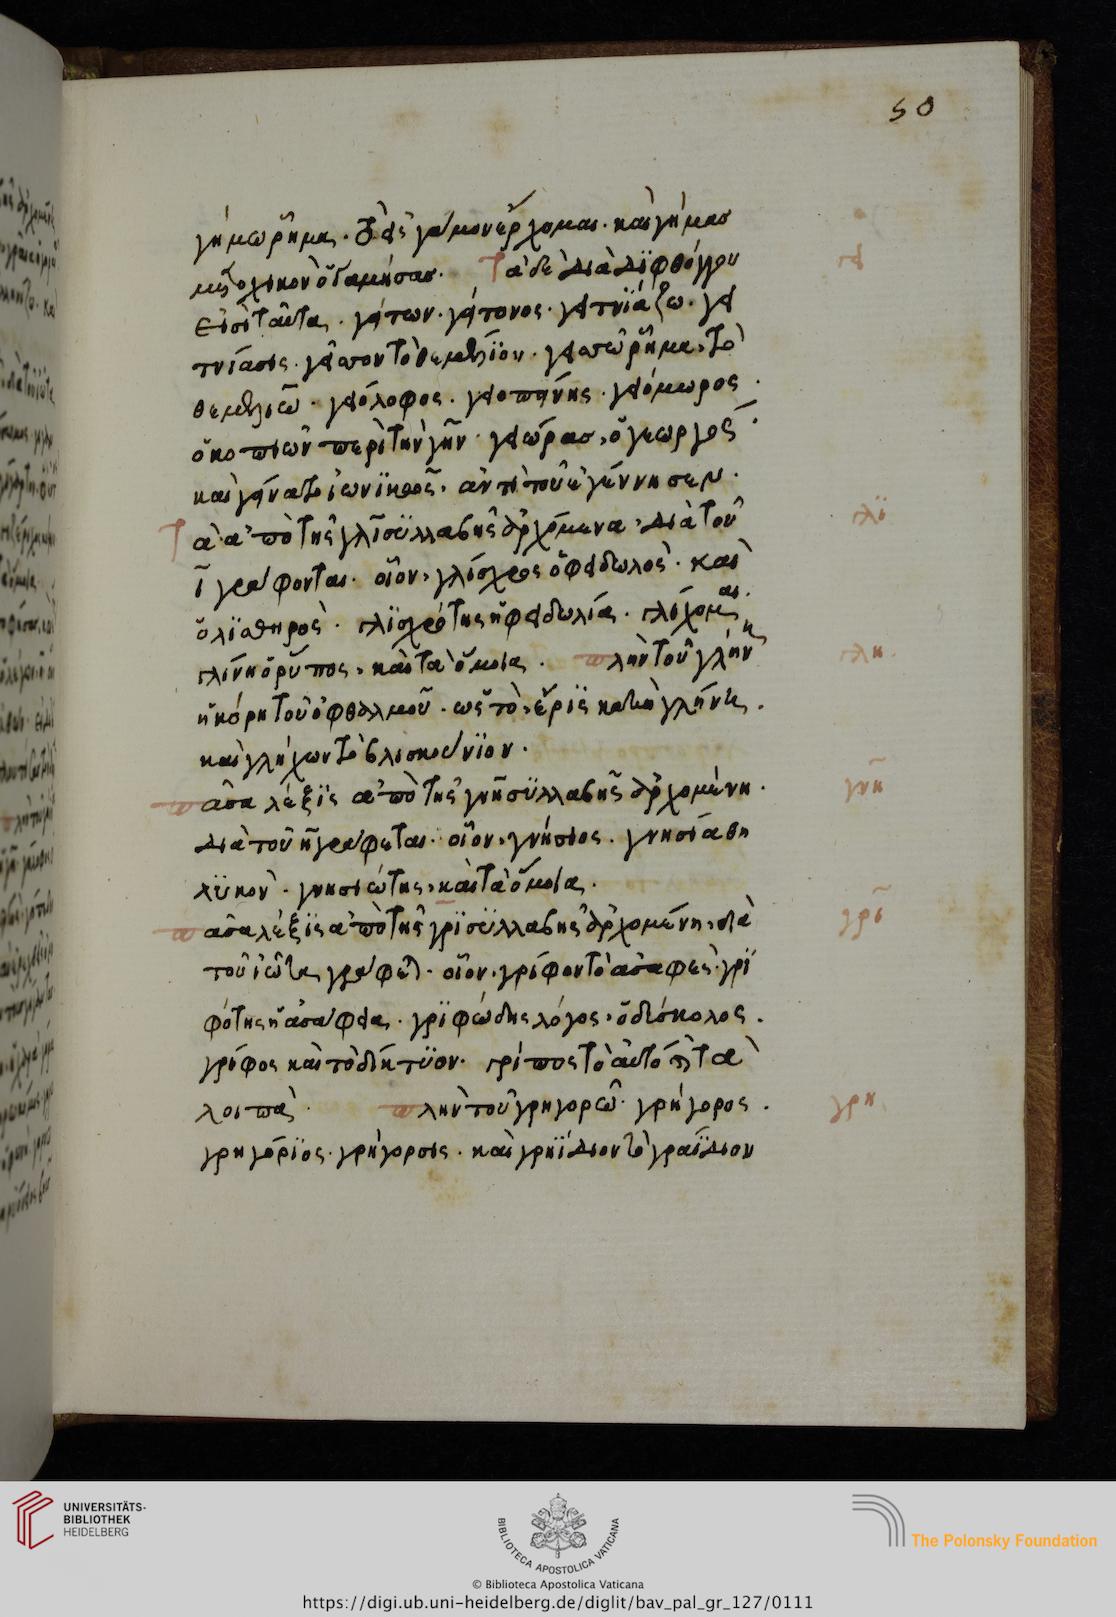 50
γήμω ῥῆμα · εἰς γάμον ἔρχομαι · καὶ γήμας
μετοχικὸν ὁ γαμήσας · Τὰ δὲ διὰ διφθόγγου
γει
εἰσὶ ταῦτα · γείτων · γείτονος · γειτνϊάζω · γει
τνίασις · γεῖσον τὸ θεμέλϊον · γεισῶ ῥῆμα, τὸ
θεμελιῶ · γειόλοφος · γειοπήνης · γειόμωρος ·
ὁ κοπιῶν περὶ τὴν γῆν · γειώρας, ὁ γεωργός ·
καὶ γείνατο ἰωνϊκῶς, ἀντὶ τοῦ ἐγέννησεν ·
Τὰ ἀπὸ τῆς γλῑ συλλαβῆς ἀρχόμενα, διὰ τοῦ
γλϊ
ῑ γράφονται · οἷον, γλίσχρος ὁ φειδωλὸς · καὶ
ὁ λϊσθηρὸς · γλϊσχρότης ἡ φειδωλία · γλίχομαι ·
γλίνη ὁ ῥύπος, καὶ τὰ ὅμοια · πλὴν τοῦ γλήνη
γλη ·
ἡ κόρη τοῦ ὀφθαλμοῦ · ὡς τὸ, ἔρϊς κατὰ γλήνης ·
καὶ γλήχων τὸ βλισκούνϊον ·
πᾶσα λέξϊς ἀπὸ τῆς γνη συλλαβῆς ἀρχομένη ·
γνη
διὰ τοῦ η γράφεται · οἷον, γνήσιος · γνησία θη
λϋκὸν · γνησιώτης, καὶ τὰ ὅμοια ·
πᾶσα λέξϊς ἀπὸ τῆς γρϊ συλλαβῆς ἀρχομένη, διὰ
γρι
τοῦ ἰῶτα γράφεται · οἷον, γρίφον τὸ ἀσαφὲς · γρϊ
φότης ἡ ἀσάφεια · γρϊφώδης λόγος, ὁ δύσκολος ·
γρίφος καὶ τὸ δίκτϋον · γρίπος τὸ αὐτό καὶ τὰ
λοιπὰ · πλὴν τοῦ γρηγορῶ · γρήγορος ·
γρη
γρηγόρϊος · γρήγορσις · καὶ γρηΐδιον τὸ γραΐδιον
UNIVERSITÄTS-
BIBLIOTHEK
HEIDELBERG
BIBLIOTECA APOSTOLICA VATICANA
The Polonsky Foundation
© Biblioteca Apostolica Vaticana
https://digi.ub.uni-heidelberg.de/diglit/bav_pal_gr_127/0111